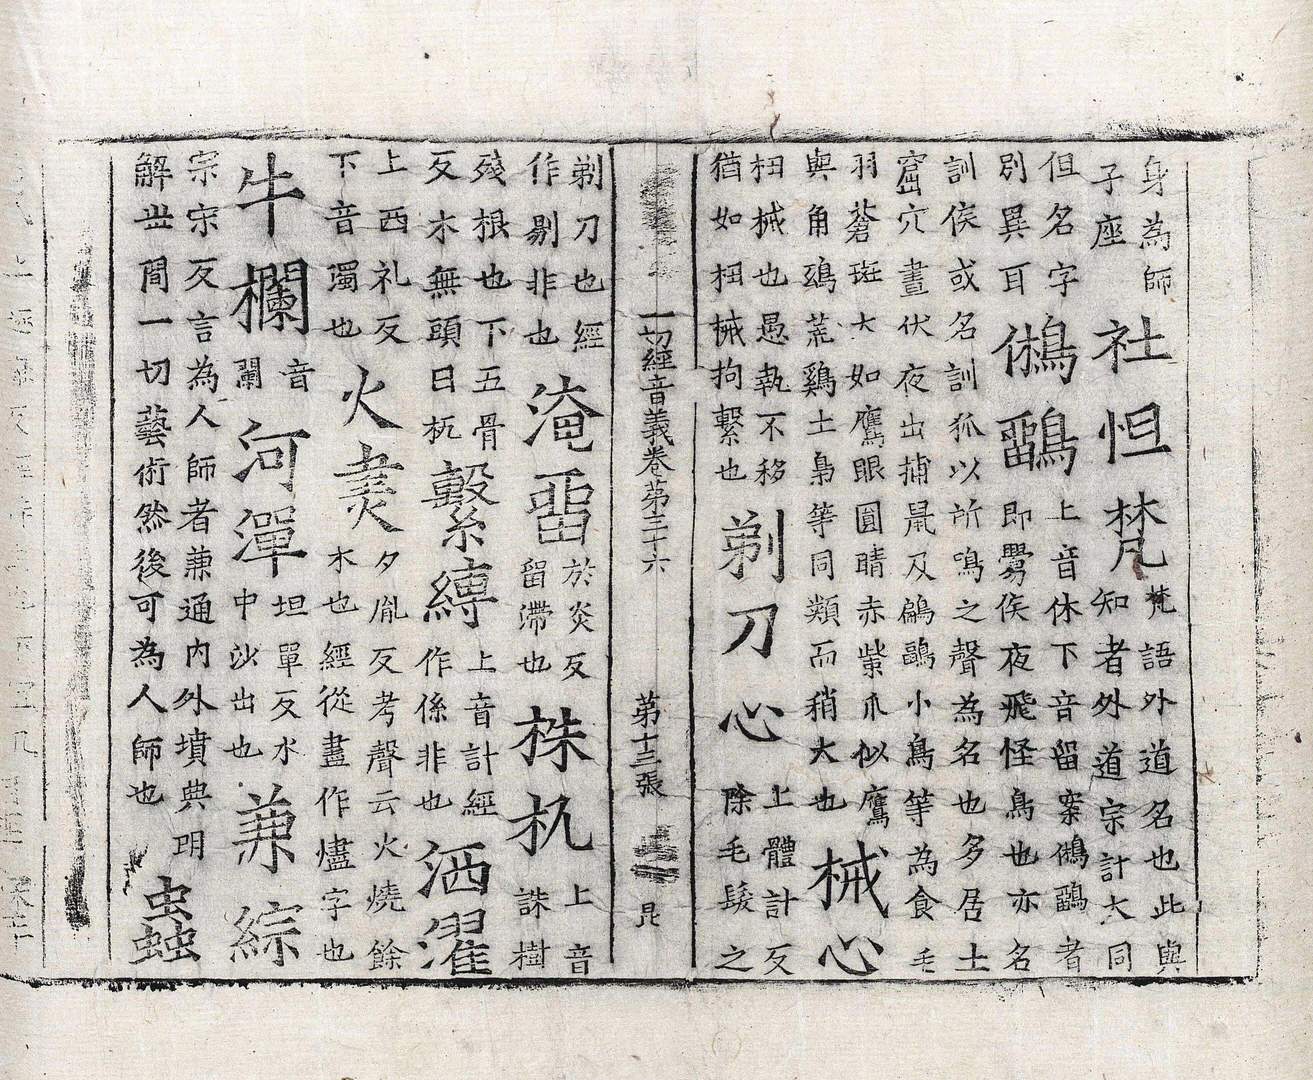 身為師
子座
社怛梵
梵語外道名也此與
知者外道宗計大同
但名字
別異耳
鵂鶹
上音休下音留案鵂鶹者
即侯夜飛怪鳥也亦名
訓侯或名訓狐以所鳴之聲為名也多居土
窟穴晝伏夜出捕鼠及鷦小鳥等為食毛
羽蒼斑大如鷹眼圓睛赤觜爪似鷹
與角鵄荒鷄土梟等同類而稍大也
械心
杻械也愚執不移
猶如杻械拘繫也
剃刀心
上體計反
除毛髮之
一切經音義卷第三十六
第十三張
昆
剃刀也經
作剔非也
淹畱
於炎反
留滯也
株杌
上音
誅樹
殘根也下五骨
反木無頭曰杌
繫縛
上音計經
作係非也
洒濯
上西礼反
下音濁也
火㶳
夕胤反考聲云火燒餘
木也經從盡作燼字也
牛欄
音
闌
河潬
坦單反水
中沙出也
兼綜
宗宋反言為人師者兼通內外墳典明
解世間一切藝術然後可為人師也
蟲